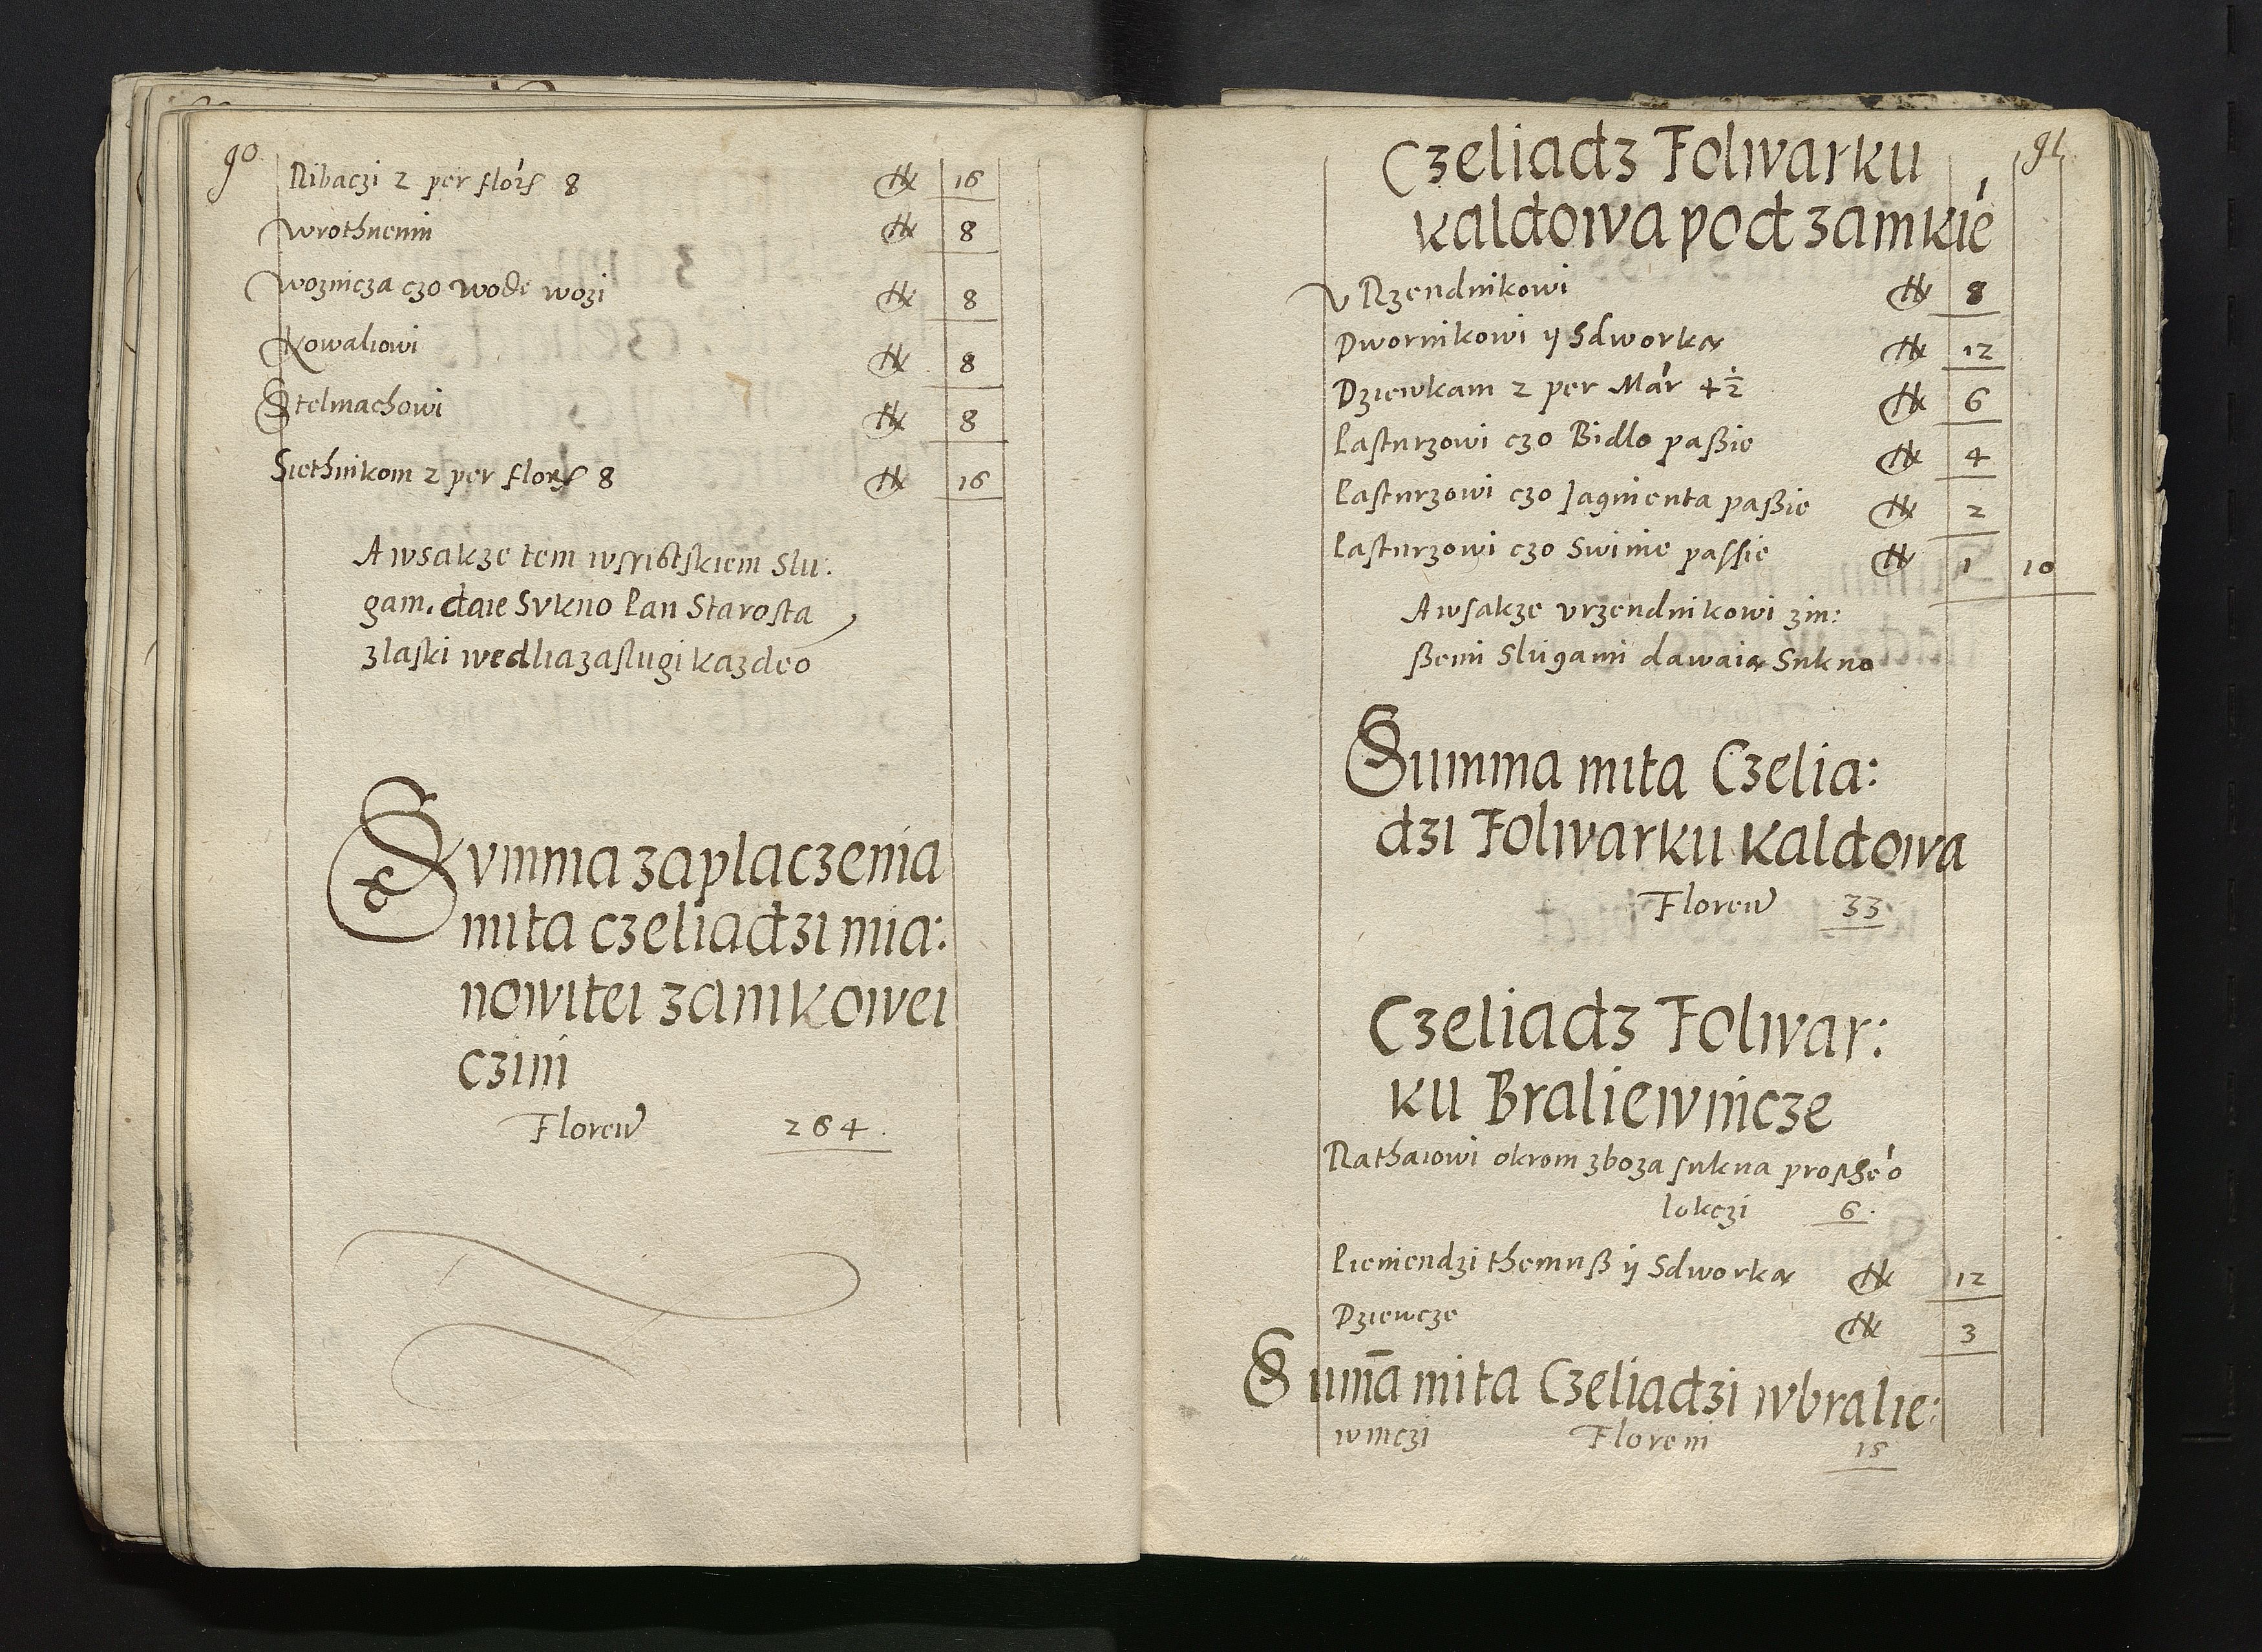 90
Ribaczi 2 per flors 8 fl 16
wrothnemu fl 8
woznicza czo wode wozi fl 8
Kowaliowi fl 8
Stelmachowi fl 8
Siethnikom 2 per flors 8 fl 16
A wsakze tem wsistskiem Slu:
gam. daie Sukno Pan Starosta
z laski wedlia zaslugi kazdeo
Summa zaplaczenia
mita czeliadzi mia:
nowitei zamkowei
czini
Floren 264
91
Czeliadz Folwarku
kaldowa pod zamkie
v Rzendnikowi fl 8
Dwornikowi ÿ Sdworką fl 12
Dziewkam 2 per Mar 4 ½ fl 6
Pasturzowi czo Bidlo paßie fl 4
Pasturzowi czo Jagnienta paßie fl 2
Pasturzowi czo Swinie passie fl 1 10
A wsakze vrzendnikowi zin:
ßemi Slugami dawaią Sukno
Summa mita Czelia:
dzi Folwarku Kaldowa
Floren 33
Czeliadz Folwar:
ku Braliewnicze
Rathaiowi okrom zboza sukna prostheo
lokczi 6.
Pieniendzi themuß ÿ Sdworką fl 12
Dziewcze fl 3
Suma mita Czeliadzi wbralie:
wniczi Floreni 15